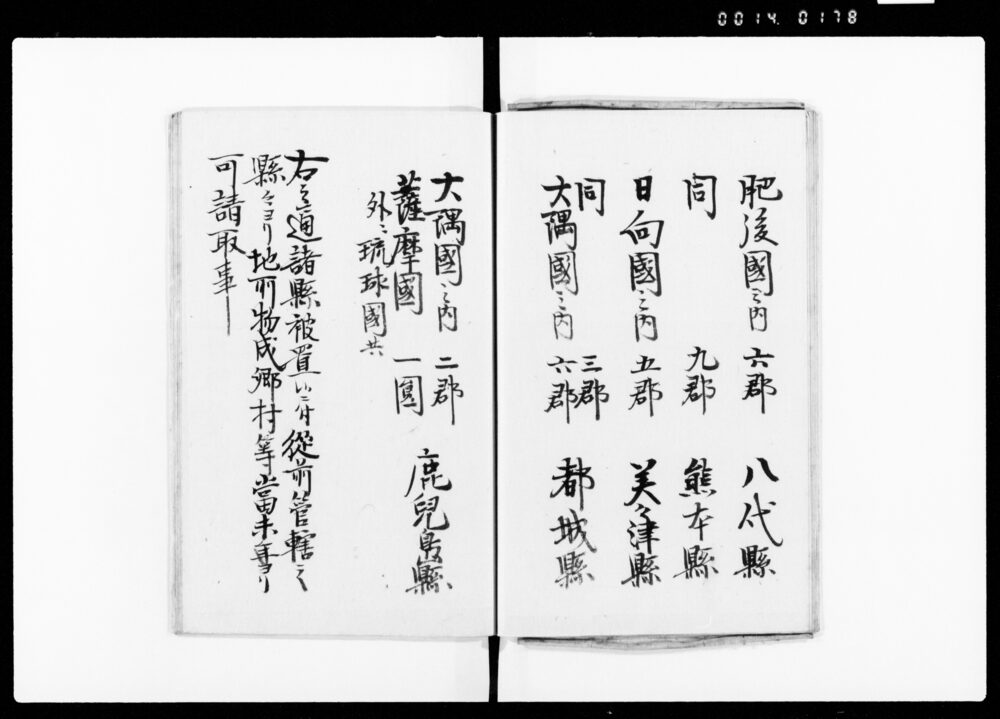 0014.0178
肥後國之内 六郡 八代縣
同 九郡 熊本縣
日向國之内 五郡 美々津縣
同 三郡
大隅國之内 六郡 都城縣
大隅國之内 二郡
薩摩國 一圓 鹿兒島縣
外ニ琉球國共
右之通諸縣被置候ニ付従前管轄之
縣々ヨリ地所物成郷村等當未年ヨリ
可請取事